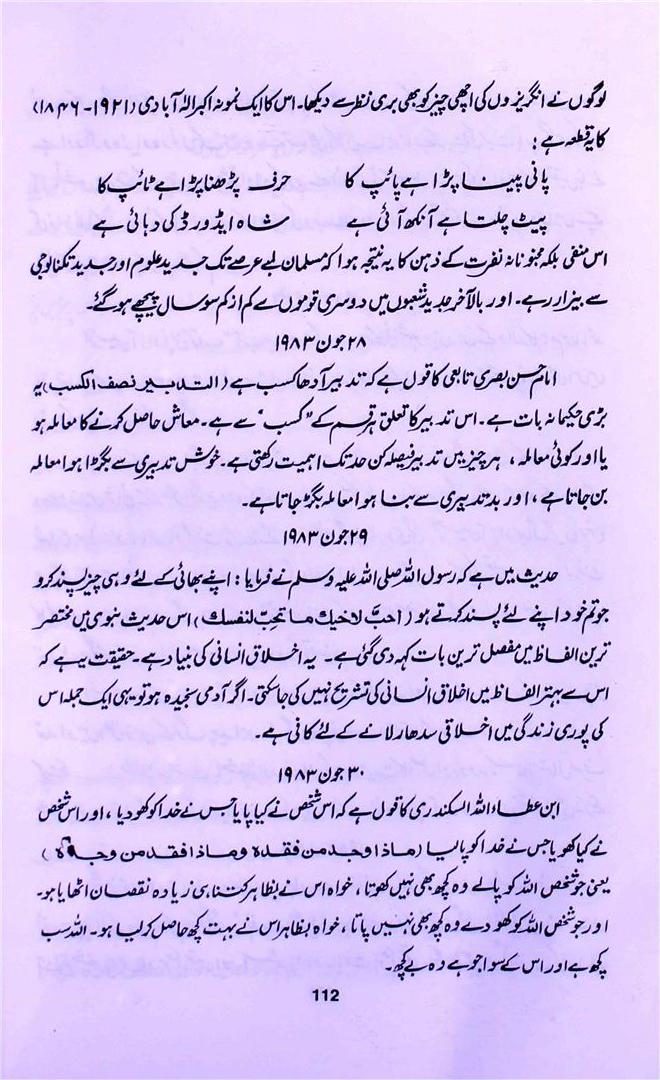 لوگوں نے انگریزوں کی اچھی چیز کو بھی بری نظر سے دیکھا۔ اس کا ایک نمونہ اکبر الٰہ آبادی (۱۹۲۱-۱۸۴۶)
کا یہ قطعہ ہے:
پانی پینا پڑا ہے پائپ کا حرف پڑھنا پڑا ہے ٹائپ کا
پیٹ چلتا ہے آنکھ آئی ہے شاہ ایڈورڈ کی دہائی ہے
اس منفی بلکہ مجنونانہ نفرت کے ذہن کا یہ نتیجہ ہوا کہ مسلمان لمبے عرصے تک جدید علوم اور جدید تکنالوجی
سے بیزار رہے۔ اور بالآخر جدید شعبوں میں دوسری قوموں سے کم از کم سو سال پیچھے ہو گئے۔
۲۸ جون ۱۹۸۳
امام حسن بصری تابعی کا قول ہے کہ تدبیر آدھا کسب ہے (التدبير نصف الكسب) یہ
بڑی حکیمانہ بات ہے۔ اس تدبیر کا تعلق ہر قسم کے "کسب" سے ہے۔ معاش حاصل کرنے کا معاملہ ہو
یا اور کوئی معاملہ، ہر چیز میں تدبیر فیصلہ کن حد تک اہمیت رکھتی ہے۔ خوش تدبیری سے بگڑا ہوا معاملہ
بن جاتا ہے، اور بدتدبیری سے بنا ہوا معاملہ بگڑ جاتا ہے۔
۲۹ جون ۱۹۸۳
حدیث میں ہے کہ رسول اللہ صلی اللہ علیہ وسلم نے فرمایا: اپنے بھائی کے لئے وہی چیز پسند کرو
جو تم خود اپنے لئے پسند کرتے ہو (احبّ لاخيك ما تحبّ لنفسك) اس حدیث نبوی میں مختصر
ترین الفاظ میں مفصل ترین بات کہہ دی گئی ہے۔ یہ اخلاق انسانی کی بنیاد ہے۔ حقیقت یہ ہے کہ
اس سے بہتر الفاظ میں اخلاق انسانی کی تشریح نہیں کی جا سکتی۔ اگر آدمی سنجیدہ ہو تو یہی ایک جملہ اس
کی پوری زندگی میں اخلاقی سدھار لانے کے لئے کافی ہے۔
۳۰ جون ۱۹۸۳
ابن عطاء اللہ السکندری کا قول ہے کہ اس شخص نے کیا پایا جس نے خدا کو کھو دیا، اور اس شخص
نے کیا کھویا جس نے خدا کو پالیا (ماذا وجد من فقده وماذا فقد من وجده)
یعنی جو شخص اللہ کو پالے وہ کچھ بھی نہیں کھوتا، خواہ اس نے بظاہر کتنا ہی زیادہ نقصان اٹھایا ہو۔
اور جو شخص اللہ کو کھو دے وہ کچھ بھی نہیں پاتا، خواہ بظاہر اس نے بہت کچھ حاصل کر لیا ہو۔ اللہ سب
کچھ ہے اور اس کے سوا جو ہے وہ بے کچھ۔
112